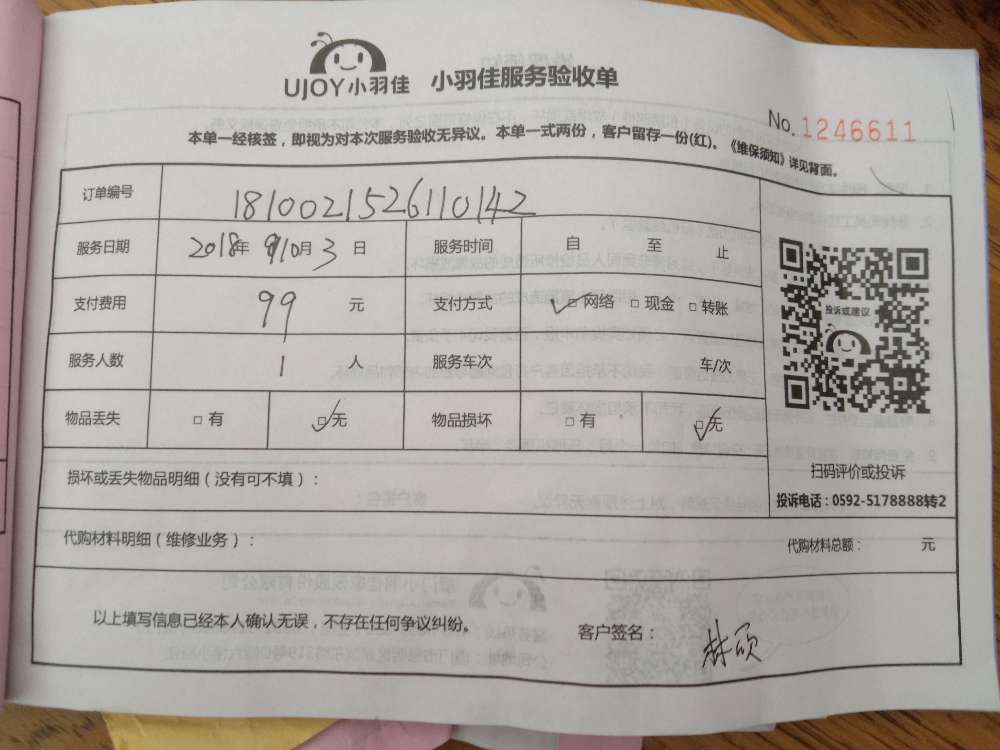 UJOY小羽佳 小羽佳服务验收单
No. 1246611
本单一经核签，即视为对本次服务验收无异议。本单一式两份，客户留存一份(红)。《维保须知》详见背面。
订单编号 181002152611014 2
服务日期 2018年 10月3日 服务时间 自 至 止
支付费用 99 元 支付方式 ☑网络 □现金 □转账
服务人数 1 人 服务车次 车/次
物品丢失 □有 ☑无 物品损坏 □有 ☑无
投诉或建议
扫码评价或投诉
投诉电话：0592-5178888转2
损坏或丢失物品明细（没有可不填）：
代购材料明细（维修业务）： 代购材料总额： 元
以上填写信息已经本人确认无误，不存在任何争议纠纷。 客户签名： 林颂